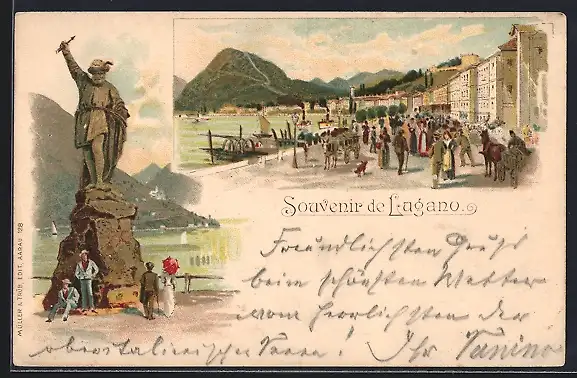 Souvenir de Lugano.
Freundlichsten Gruß
beim schönsten Wetter
vom herrlichsten der
oberitalienischen Seeen! Ihr
MÜLLER & TRÜB, EDIT. AARAU. 128